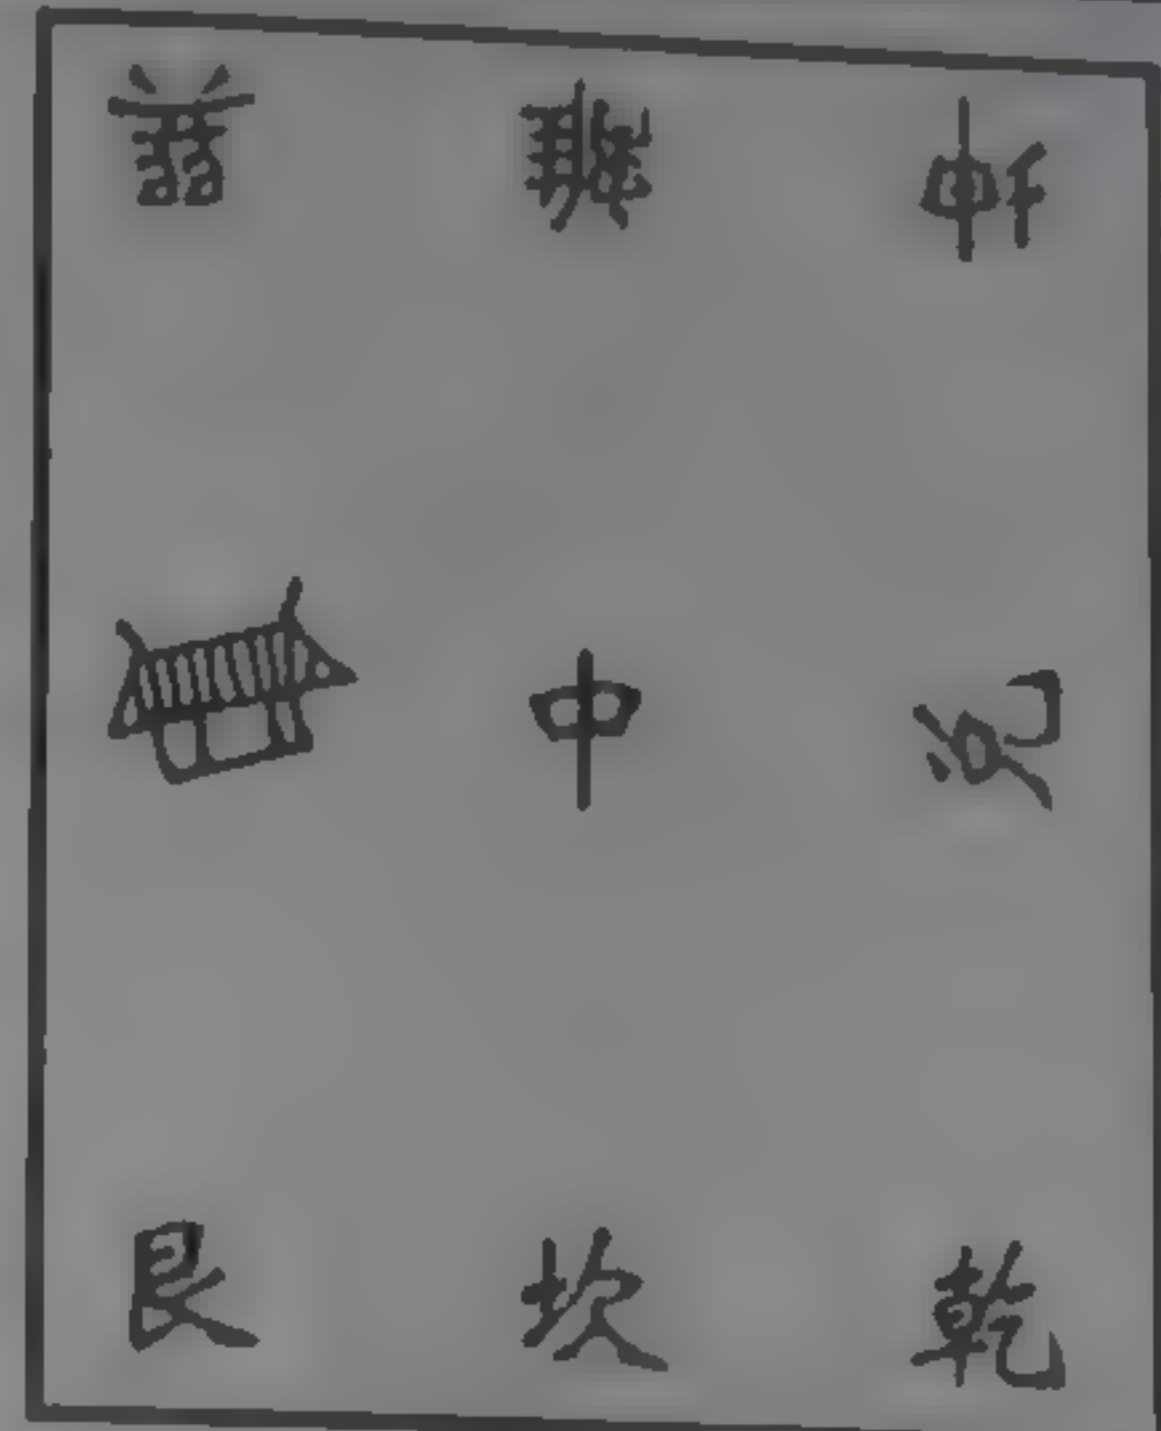 巽 離 坤
震 中 兌
艮 坎 乾